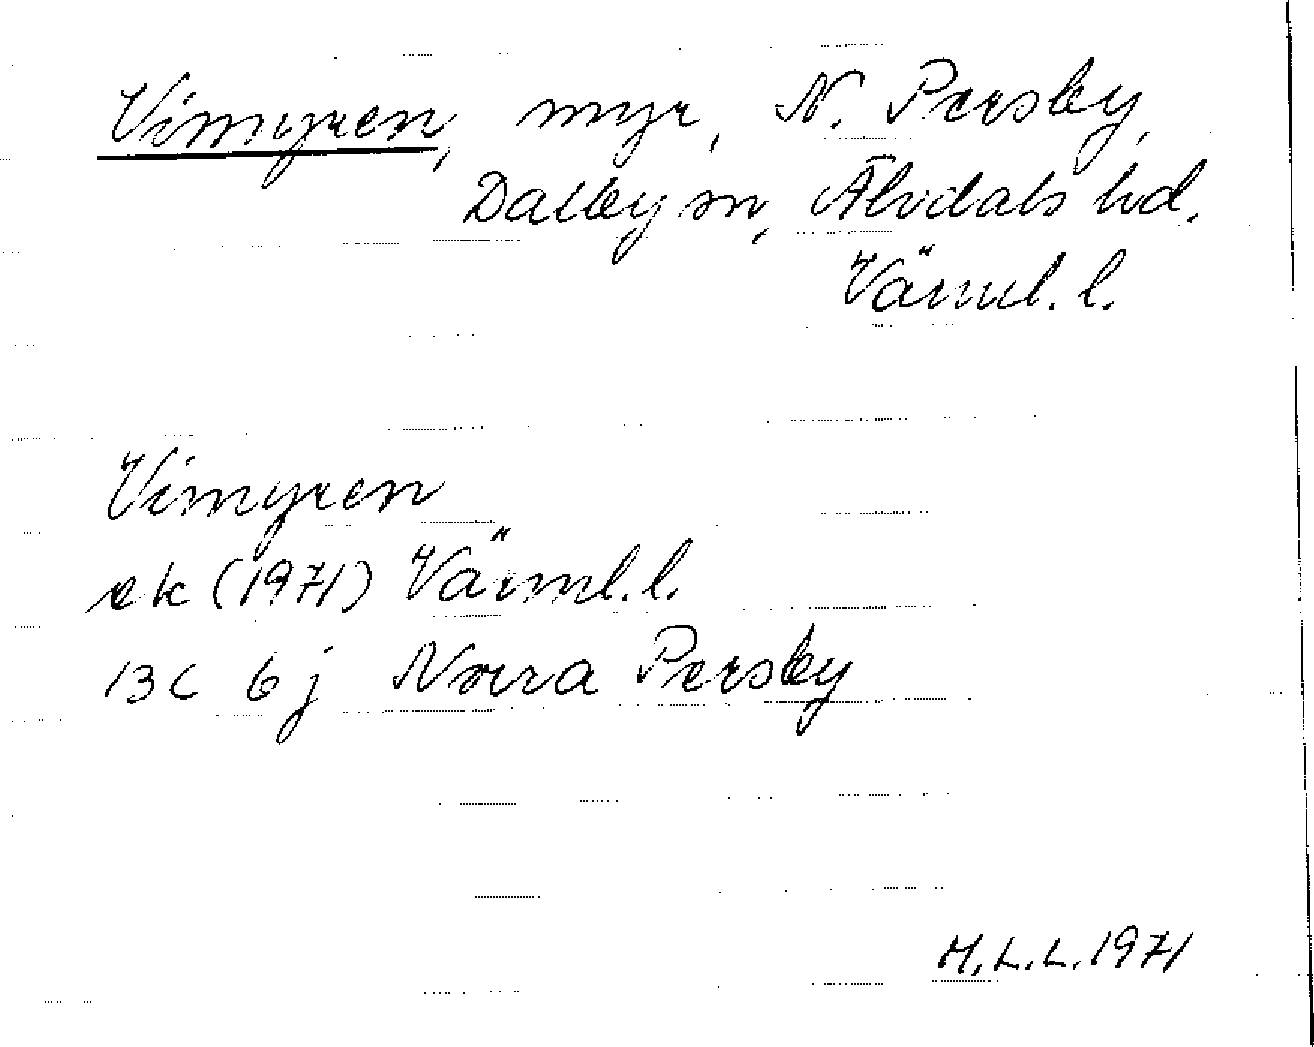 Vimyren, myr, N. Persby,
Dalby sn, Älvdals hd.
Värml. l.
Vimyren
ek (1971) Värml. l.
13C 6j Norra Persby
M.L.L. 1971